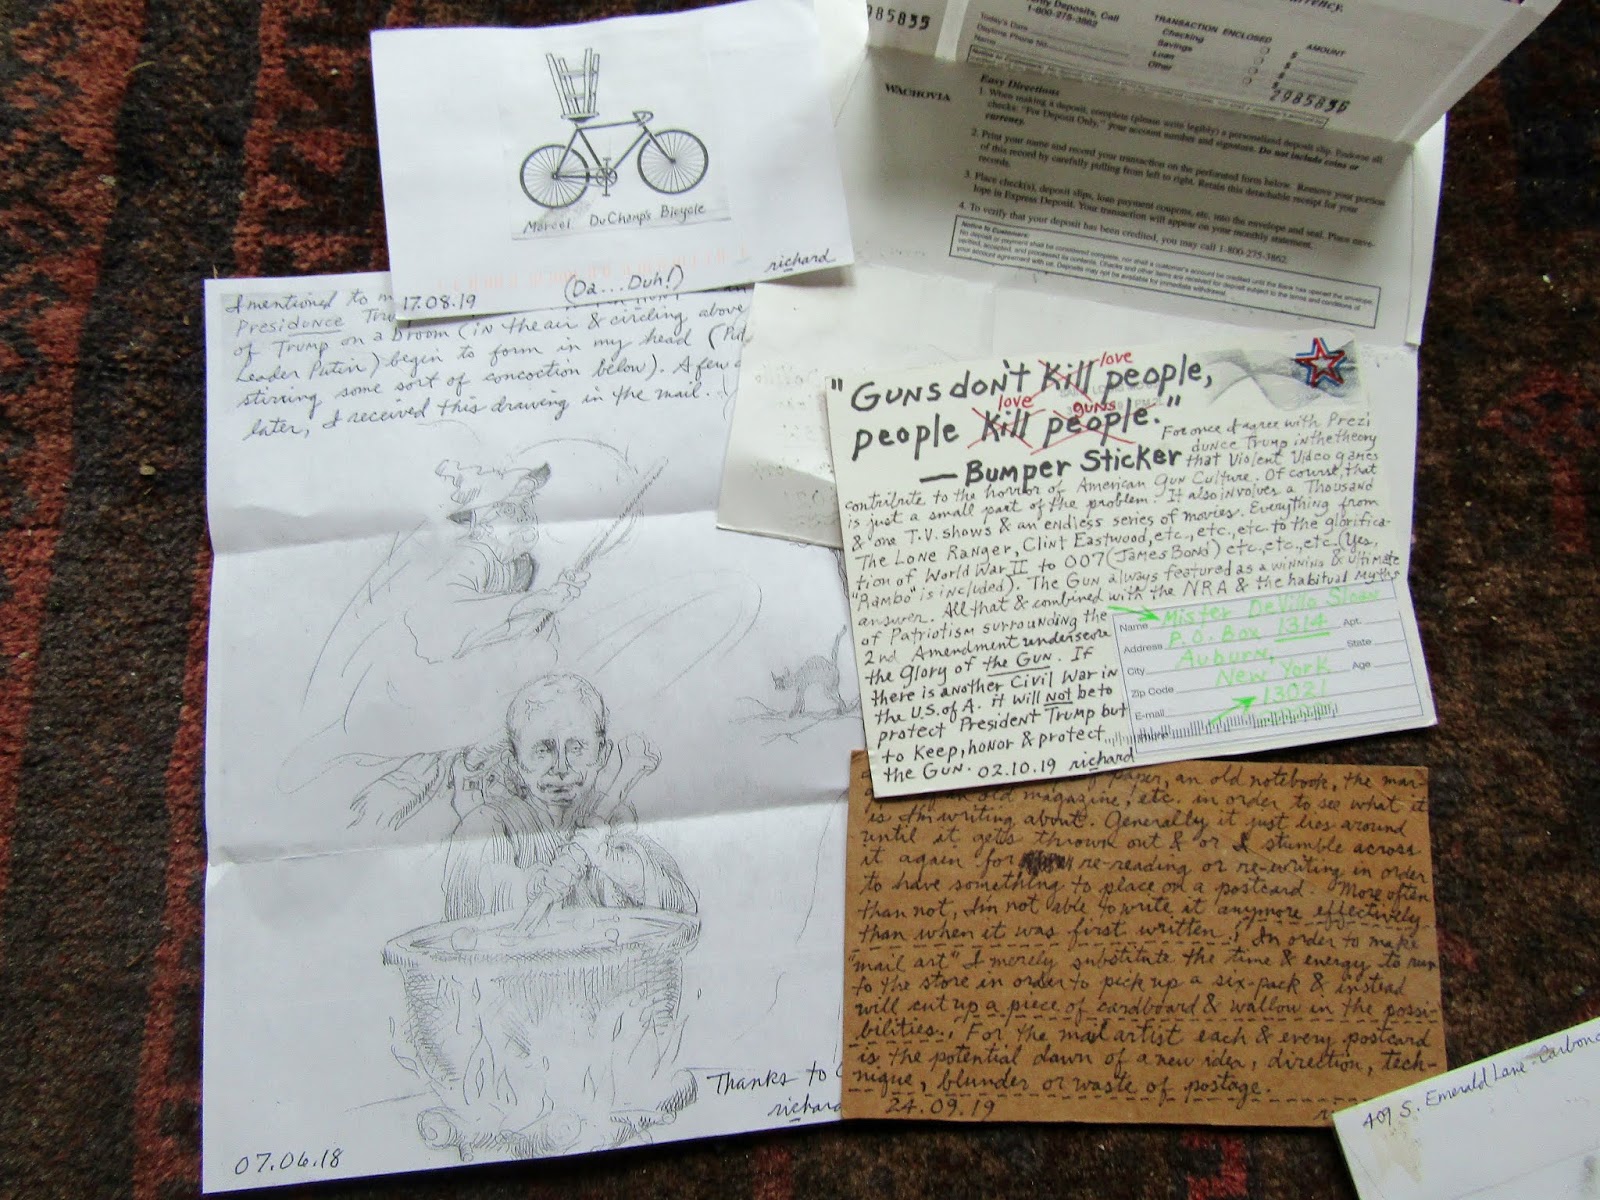 Marcel DuChamp's Bicycle
(Da...Duh!)
17.08.19
richard
I mentioned to
Presidunce
of Trump on a broom (in the air & circling above
Leader Putin) begin to form in my head
stirring some sort of concoction below). A few
later, I received this drawing in the mail.
Thanks to
richard
07.06.18
985835
Deposits, Call
1-800-275-3862
Today's Date
Daytime Phone No.
Name
TRANSACTION ENCLOSED
AMOUNT
Checking $
Savings $
Loan $
Other $
2985835
WACHOVIA
Easy Directions
1. When making a deposit, complete (please write legibly) a personalized deposit slip. Endorse all
checks: "For Deposit Only," your account number and signature. Do not include coins or
currency.
2. Print your name and record your transaction on the perforated form below. Remove your portion
of this record by carefully pulling from left to right. Retain this detachable receipt for your
records.
3. Place check(s), deposit slips, loan payment coupons, etc. into the envelope and seal. Place enve-
lope in Express Deposit. Your transaction will appear on your monthly statement.
4. To verify that your deposit has been credited, you may call 1-800-275-3862.
Notice to Customers:
"Guns don't Kill love people,
people Kill love people guns."
— Bumper Sticker
For once I agree with Prezi
dunce Trump in the theory
that Violent Video games
contribute to the horror of American Gun Culture. Of course, that
is just a small part of the problem. It also involves a Thousand
& one T.V. shows & an endless series of movies. Everything from
The Lone Ranger, Clint Eastwood, etc., etc., etc. to the glorifica-
tion of World War II to 007 (James Bond) etc., etc., etc. (Yes,
"Rambo" is included). The Gun always featured as a winning & ultimate
answer. All that & combined with the NRA & the habitual Myths
of Patriotism surrounding the
2nd Amendment underscore
the Glory of the Gun. If
there is another Civil War in
the U.S. of A. it will not be to
protect President Trump but
to Keep, honor & protect
the Gun. 02.10.19 richard
Name Mister DeVillo Sloan
Address P.O. Box 1314 Apt.
City Auburn, State
Zip Code New York Age
E-mail 13021
paper, an old notebook, the mar-
old magazine, etc. in order to see what it
is I'm writing about. Generally it just lies around
until it gets thrown out & or I stumble across
it again for re-reading or re-writing in order
to have something to place on a postcard. More often
than not, I'm not able to write it anymore effectively
than when it was first written. In order to make
"mail art" I merely substitute the time & energy to run
to the store in order to pick up a six-pack & instead
will cut up a piece of cardboard & wallow in the possi-
bilities. For the mail artist each & every postcard
is the potential dawn of a new idea, direction, tech-
nique, blunder or waste of postage.
24.09.19
409 S. Emerald Lane - Carbond